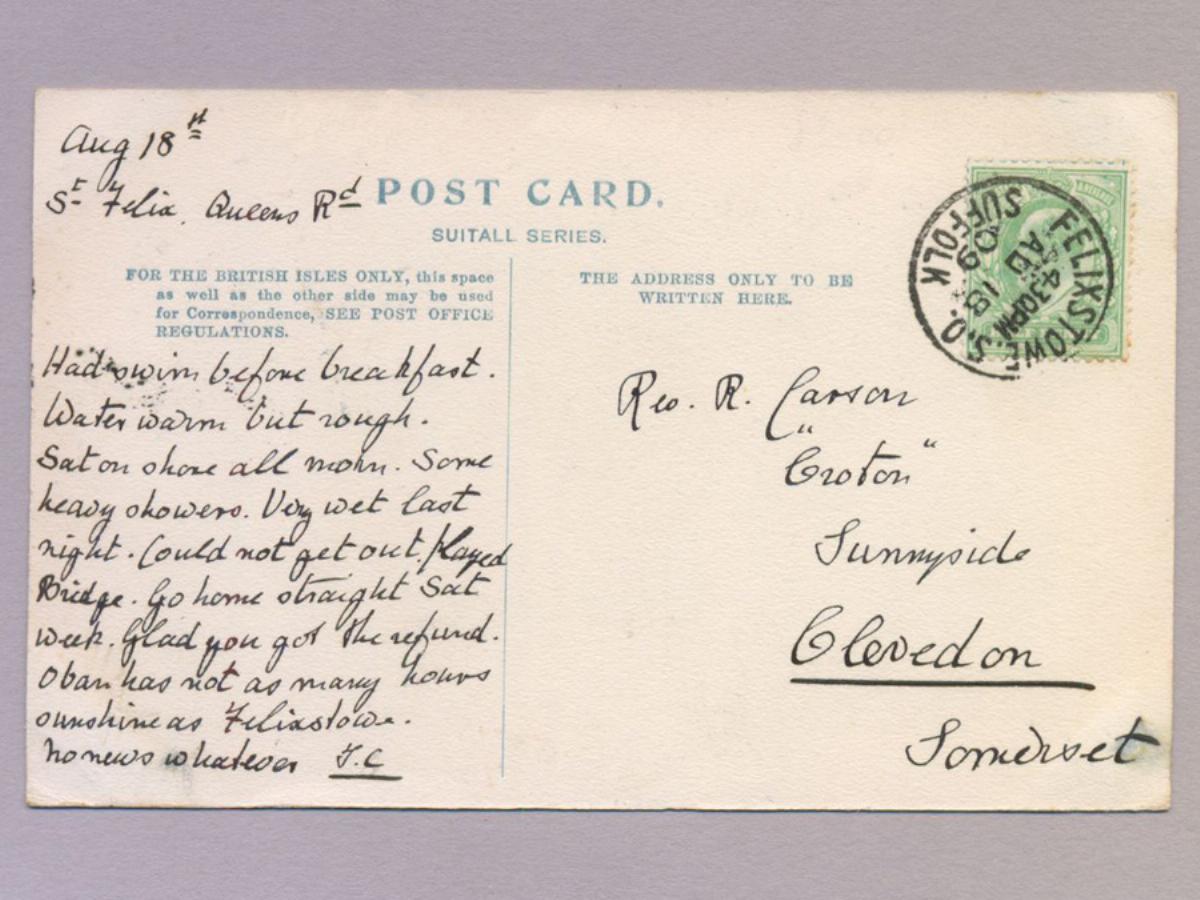 Aug 18st
St. Felix. Queens Rd
POST CARD.
SUITALL SERIES.
FOR THE BRITISH ISLES ONLY, this space
as well as the other side may be used
for Correspondence, SEE POST OFFICE
REGULATIONS.
Had swim before breakfast.
Water warm but rough.
Sat on shore all morn. Some
heavy showers. Very wet last
night. Could not get out, played
Bridge. Go home straight Sat
week. Glad you got the refund.
Oban has not as many hours
sunshine as Felixstowe.
No news whatever
THE ADDRESS ONLY TO BE
WRITTEN HERE.
Rev. R. Carson
"Croton"
Sunnyside
Clevedon
Somerset
FELIXSTOWE S.O.
4.30PM
AU 18
09
SUFFOLK